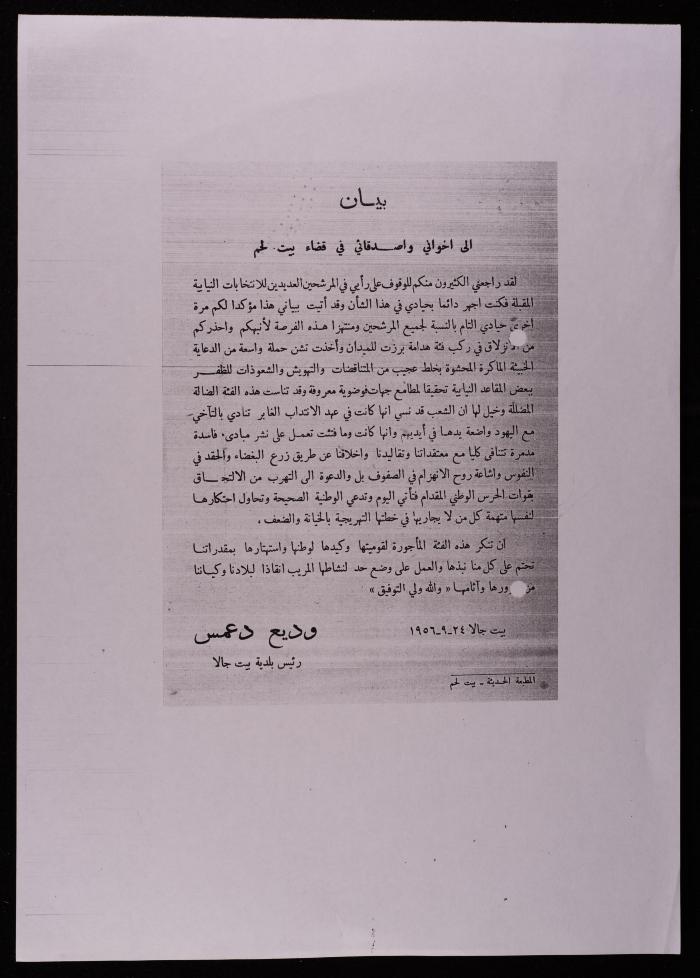 بيــان
الى اخواني واصــدقائي في قضاء بيت لحم
لقد راجعني الكثيرون منكم للوقوف على رأيي في المرشحين العديدين للانتخابات النيابية
المقبلة فكنت اجهر دائما بحيادي في هذا الشأن وقد أتيت ببياني هذا مؤكدا لكم مرة
اخرى حيادي التام بالنسبة لجميع المرشحين ومنتهزا هـذه الفرصة لأنبهكم واحذركم
من الانزلاق في ركب فئة هدامة برزت للميدان وأخذت تشن حملة واسعة من الدعاية
الخبيثة الماكرة المحشوة بخلط عجيب من المتناقضات والتهويش والشعوذات للظفــر
ببعض المقاعد النيابية تحقيقا لمطامع جهات فوضوية معروفة وقد تناست هذه الفئة الضالة
المضللة وخيل لها ان الشعب قد نسي انها كانت في عهد الانتداب الغابر تنادي بالتآخي
مع اليهود واضعة يدهـا في أيديهم وانها كانت وما فتئت تعمل على نشر مبادىء فاسدة
مدمرة تتنافى كليا مع معتقداتنا وتقاليدنا واخلاقنا عن طريق زرع البغضاء والحقد في
النفوس واشاعة روح الانهزام في الصفوف بل والدعوة الى التهرب من الالتحــاق
بقوات الحرس الوطني المقدام فتأتي اليوم وتدعي الوطنية الصحيحة وتحاول احتكارهـا
لنفسها متهمة كل من لا يجاريها في خطتها التهريجية بالخيانة والضعف .
ان تنكر هذه الفئة المأجورة لقوميتها وكيدها لوطنها واستهتارها بمقدراتنـا
تحتم على كل منا نبذها والعمل على وضع حد لنشاطها المريب انقاذا لبلادنا وكيـاننا
من شرورها وآثامهـا « والله ولي التوفيق »
بيت جالا ٢٤ـ٩ـ١٩٥٦
وديع دعمس
رئيس بلدية بيت جالا
المطبعة الحديثة ـ بيت لحم